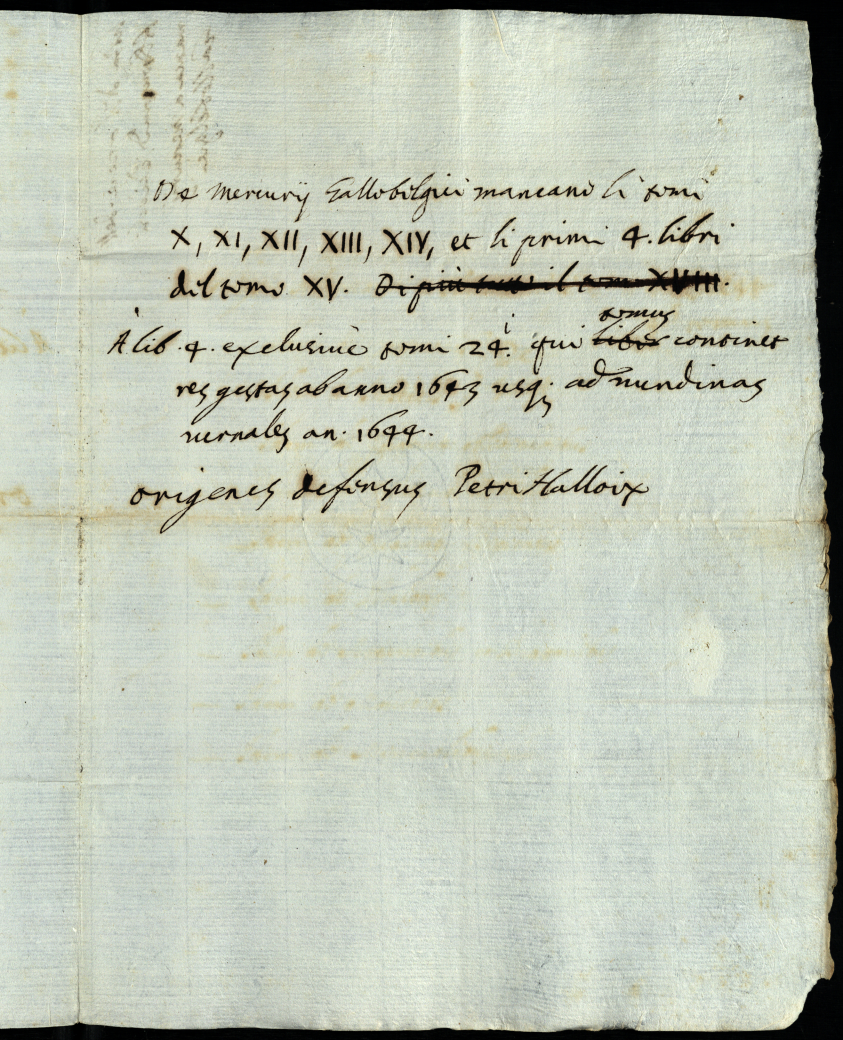 De Mercurij Gallobelgici mancano li tomi
X, XI, XII, XIII, XIV, et li primi 4. libri
del tomo XV. Di più tutto il tomo XVIII.
tomus
À lib. 4. exclusiuè tomi 24.i qui liber continet
res gestas ab anno 1643 usq; ad nundinas
uernales an. 1644.
Origenes defensus Petri Halloix